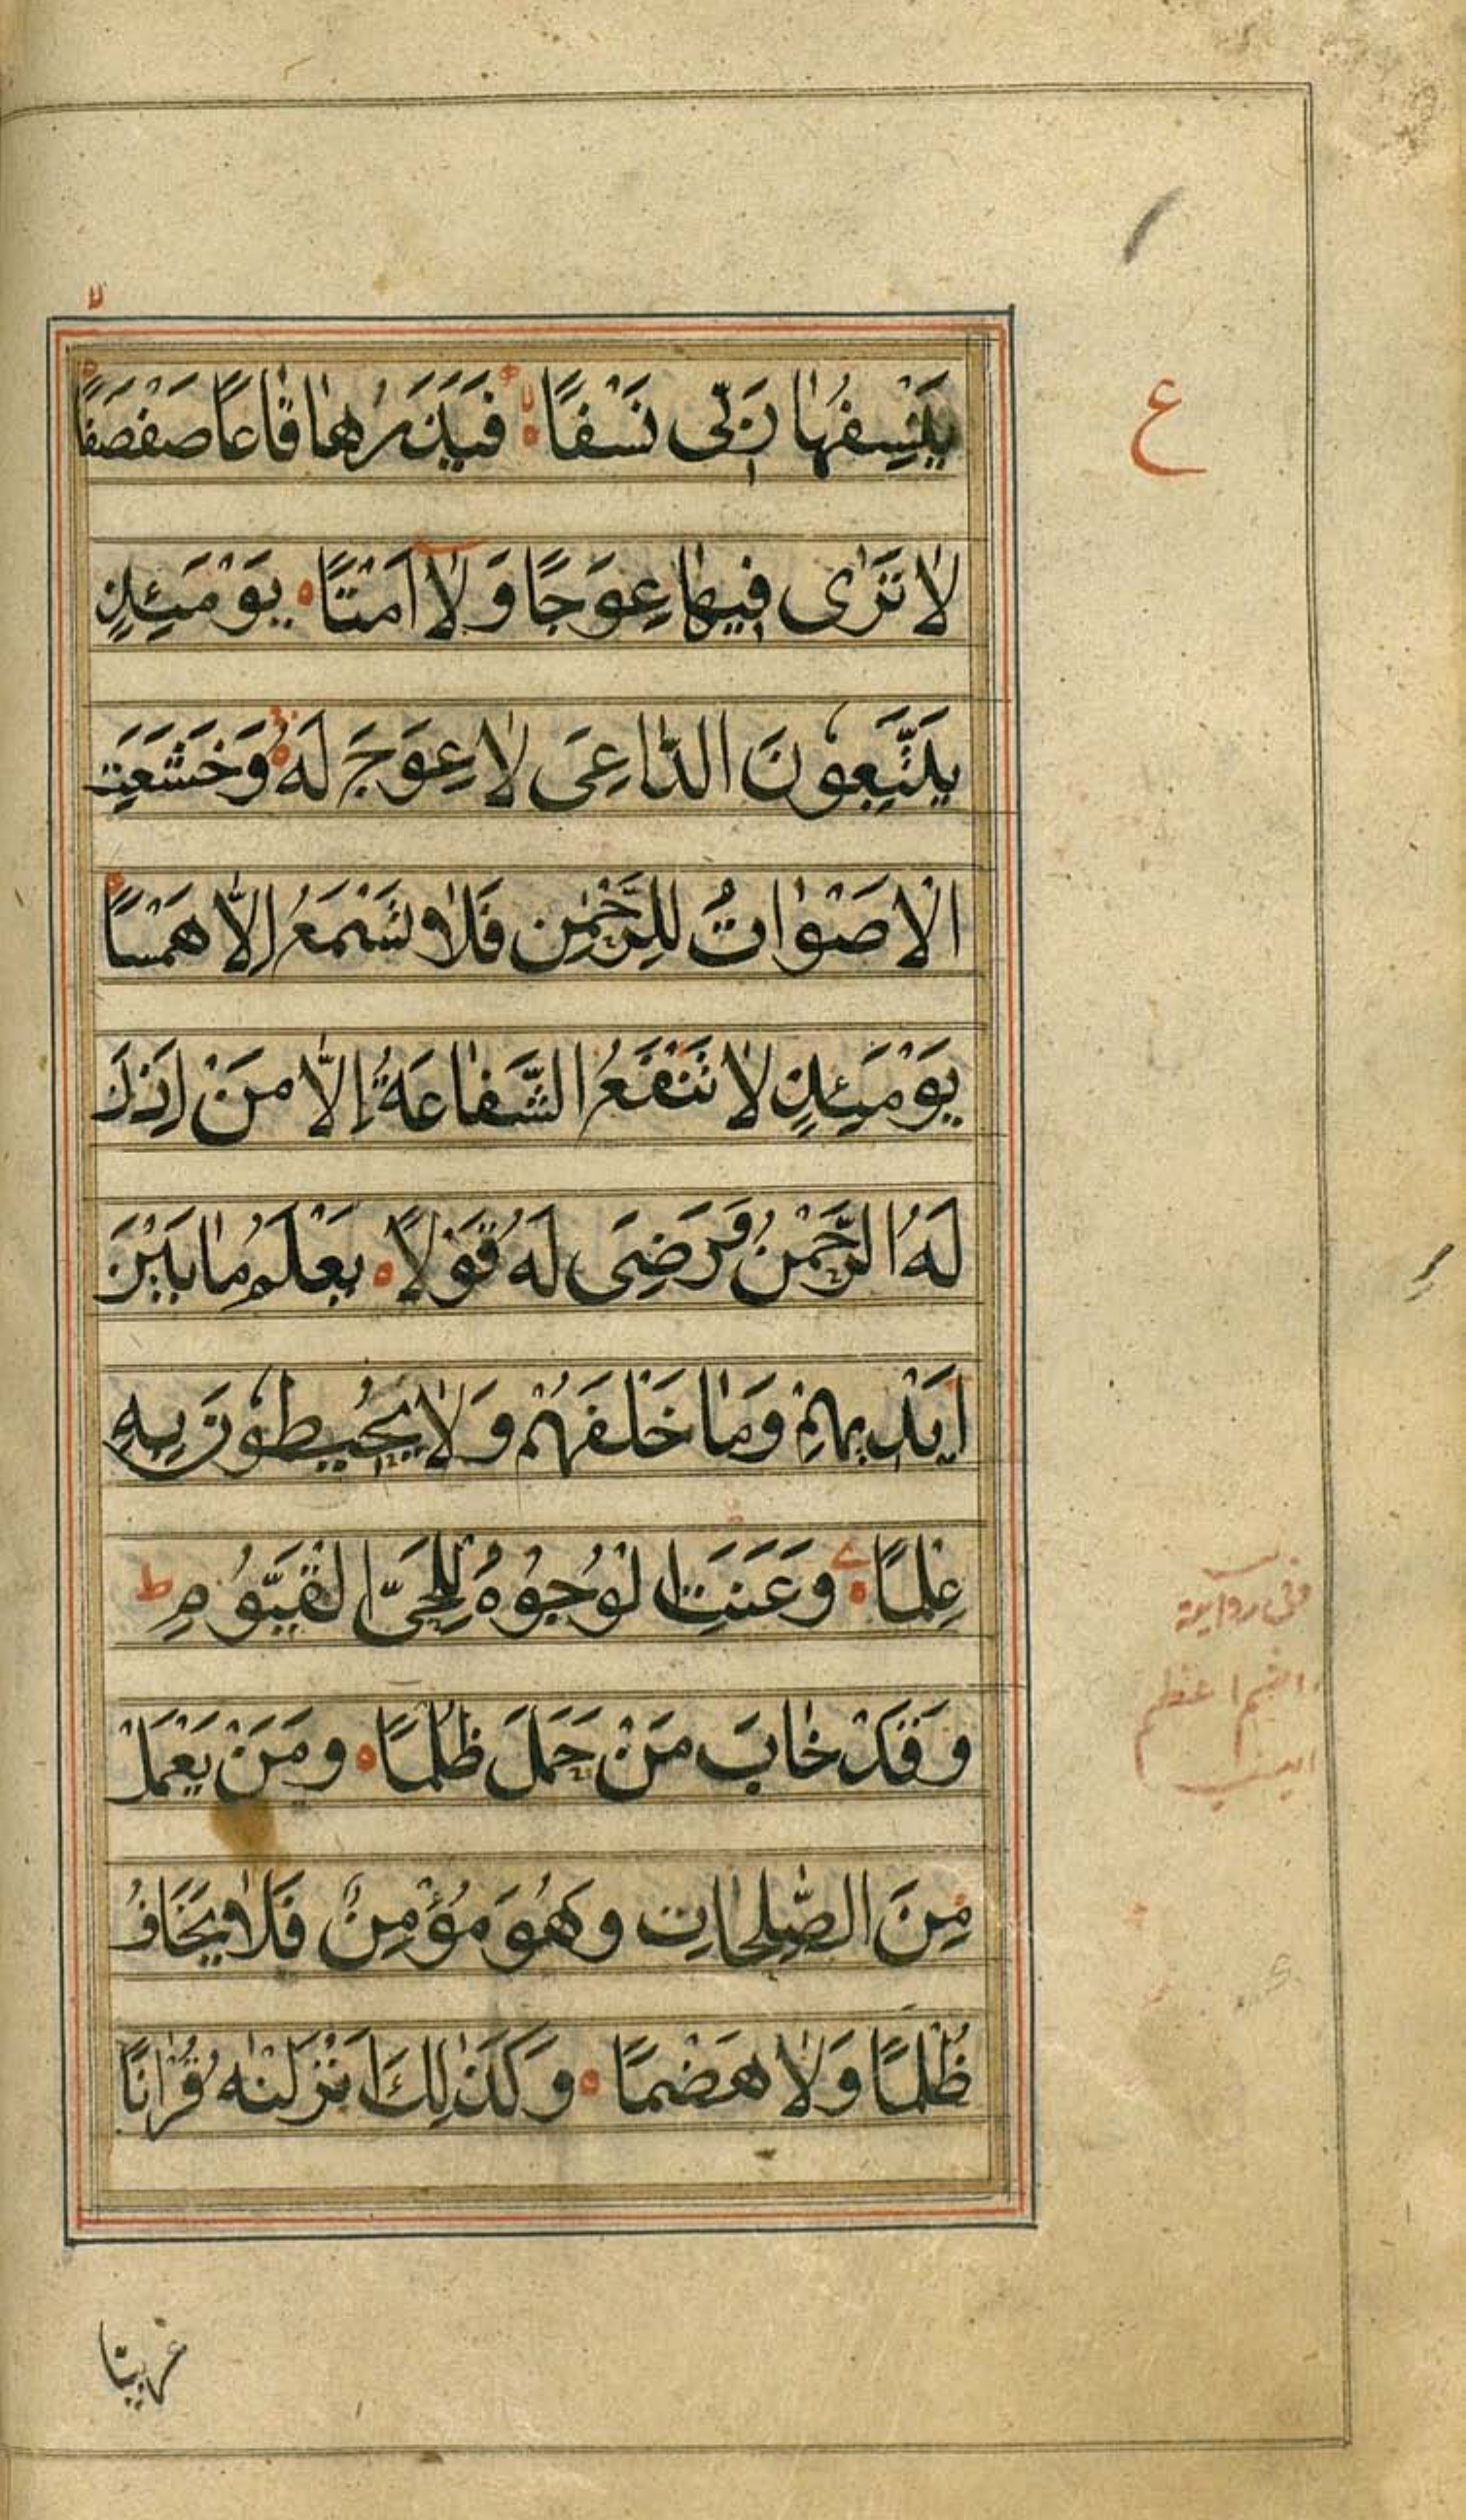 ع
يَنْسِفُهَا رَبِّى نَسْفًا فَيَذَرُهَا قَاعًا صَفْصَفًا
لَا تَرٰى فِيهَا عِوَجًا وَلَا أَمْتًا يَوْمَئِذٍ
يَتَّبِعُونَ الدَّاعِىَ لَا عِوَجَ لَهُ وَخَشَعَتِ
الْاَصْوَاتُ لِلرَّحْمٰنِ فَلَا تَسْمَعُ اِلَّا هَمْسًا
يَوْمَئِذٍ لَا تَنْفَعُ الشَّفَاعَةُ اِلَّا مَنْ اَذِنَ
لَهُ الرَّحْمٰنُ وَرَضِىَ لَهُ قَوْلًا يَعْلَمُ مَا بَيْنَ
اَيْدِيهِمْ وَمَا خَلْفَهُمْ وَلَا يُحِيطُونَ بِهِ
عِلْمًا وَعَنَتِ الْوُجُوهُ لِلْحَىِّ الْقَيُّومِ ط
وَقَدْ خَابَ مَنْ حَمَلَ ظُلْمًا وَمَنْ يَعْمَلْ
مِنَ الصّٰلِحَاتِ وَهُوَ مُؤْمِنٌ فَلَا يَخَافُ
ظُلْمًا وَلَا هَضْمًا وَكَذٰلِكَ اَنْزَلْنٰهُ قُرْاٰنًا
فى رواية
اسم اعظم
عربيّا